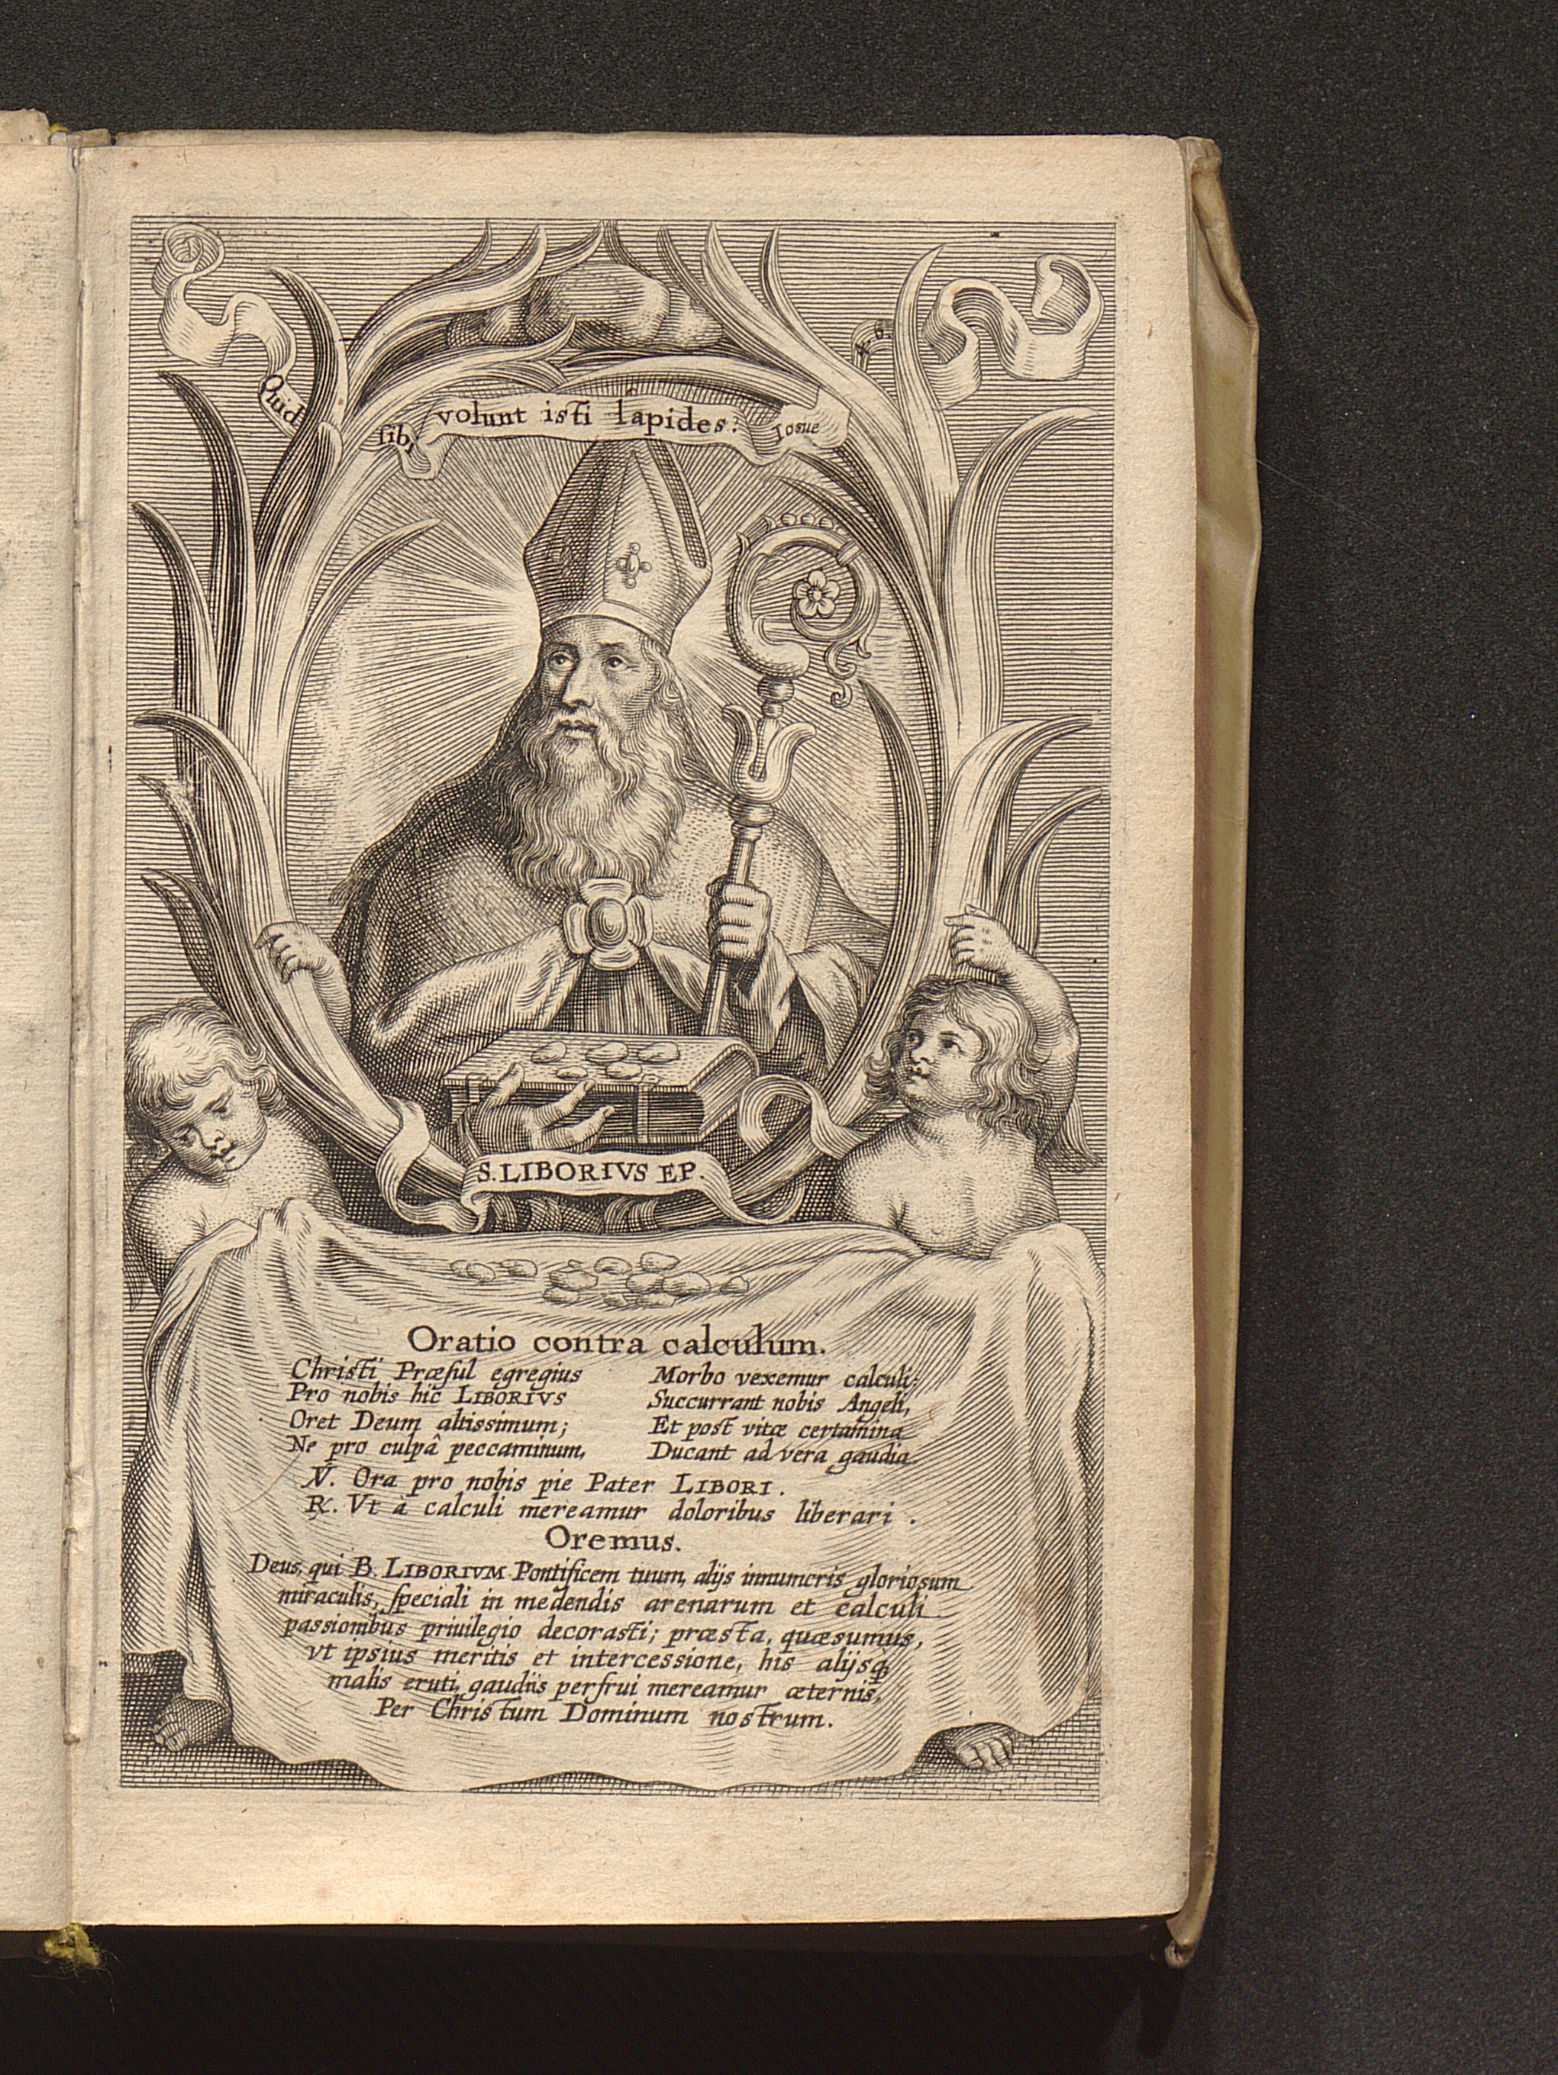 Quid sibi volunt isti lapides? Iosue 4. 6.
S. LIBORIVS EP.
Oratio contra calculum.
Christi Præsul egregius
Pro nobis hic LIBORIVS
Oret Deum altissimum;
Ne pro culpâ peccaminum,
Morbo vexemur calculi;
Succurrant nobis Angeli,
Et post vitæ certamina
Ducant ad vera gaudia.
V. Ora pro nobis pie Pater LIBORI.
R. Vt à calculi mereamur doloribus liberari.
Oremus.
Deus, qui B. LIBORIVM Pontificem tuum, alijs innumeris gloriosum
miraculis, speciali in medendis arenarum et calculi
passionibus priuilegio decorasti; præsta, quæsumus,
vt ipsius meritis et intercessione, his alijsq₃
malis eruti, gaudiis perfrui mereamur æternis.
Per Christum Dominum nostrum.